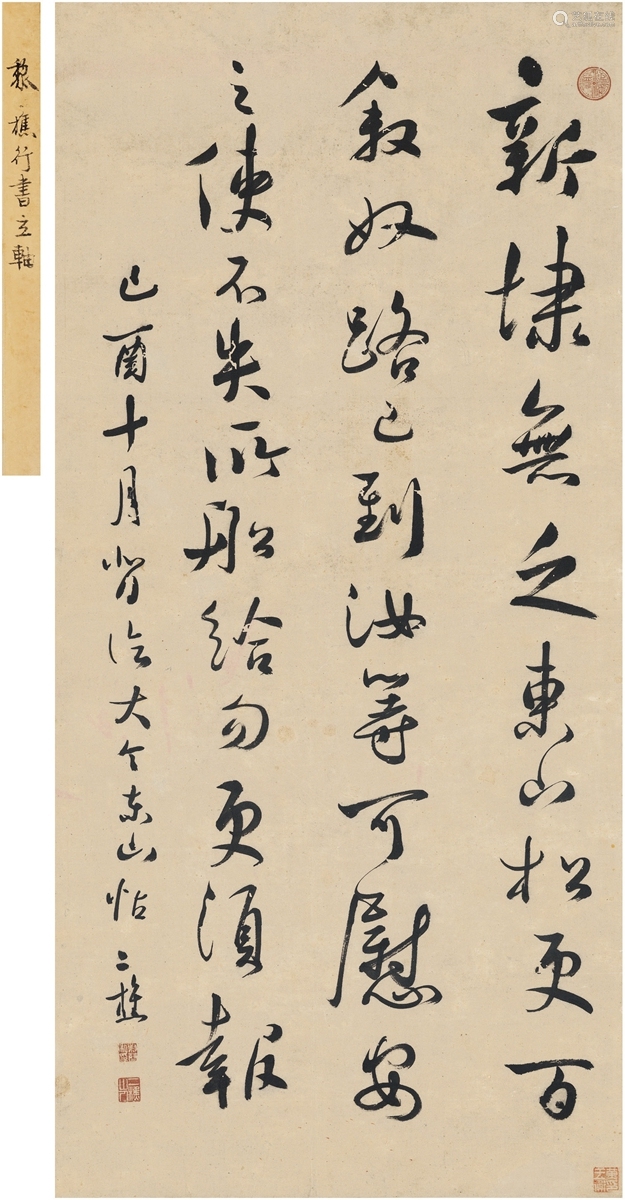 新埭無之東山松更百
叙奴路已到汝等可慰安
之使不失所船給勿更須報
己酉十月背臨大令東山帖二樵
黎二樵行書立軸